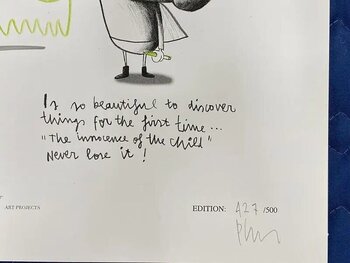 Is so beautiful to discover
things for the first time...
"The innocence of the child"
Never lose it!
EDITION: 427 /500
ART PROJECTS